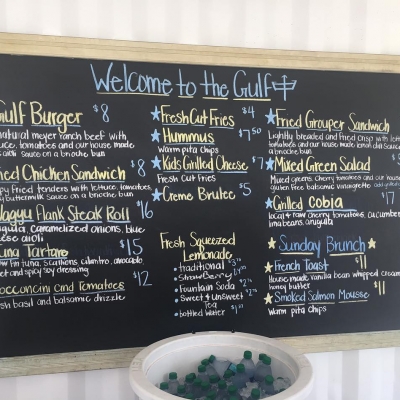 Welcome to the Gulf
Gulf Burger $8
natural meyer ranch beef with
tomatoes and our house made
sauce on a brioche bun
Fried Chicken Sandwich $8
fried tenders with lettuce, tomatoes,
buttermilk sauce on a brioche bun
Wagyu Flank Steak Roll $16
arugula, caramelized onions, blue
cheese aioli
Tuna Tartare $15
tuna, scallions, cilantro, avocado,
and spicy soy dressing
Bocconcini and Tomatoes $12
fresh basil and balsamic drizzle
Fresh Cut Fries $4
Hummus $7.50
Warm pita chips
Kids Grilled Cheese $7
Fresh Cut Fries
Creme Brulee $5
Fresh Squeezed
Lemonade
• traditional
• Strawberry
• Fountain Soda
• Sweet & unsweet
Tea
• bottled water
Fried Grouper Sandwich
Lightly breaded and fried crisp with
tomatoes and our house made
a brioche bun
Mixed Green Salad $
Mixed greens, cherry tomatoes and our house
gluten free balsamic vinaigrette
Grilled Cobia $17
local & raw cherry tomatoes, cucumber
lima beans, arugula
Sunday Brunch
French Toast $11
House made vanilla bean whipped cream
honey butter
Smoked Salmon Mousse $11
Warm pita chips